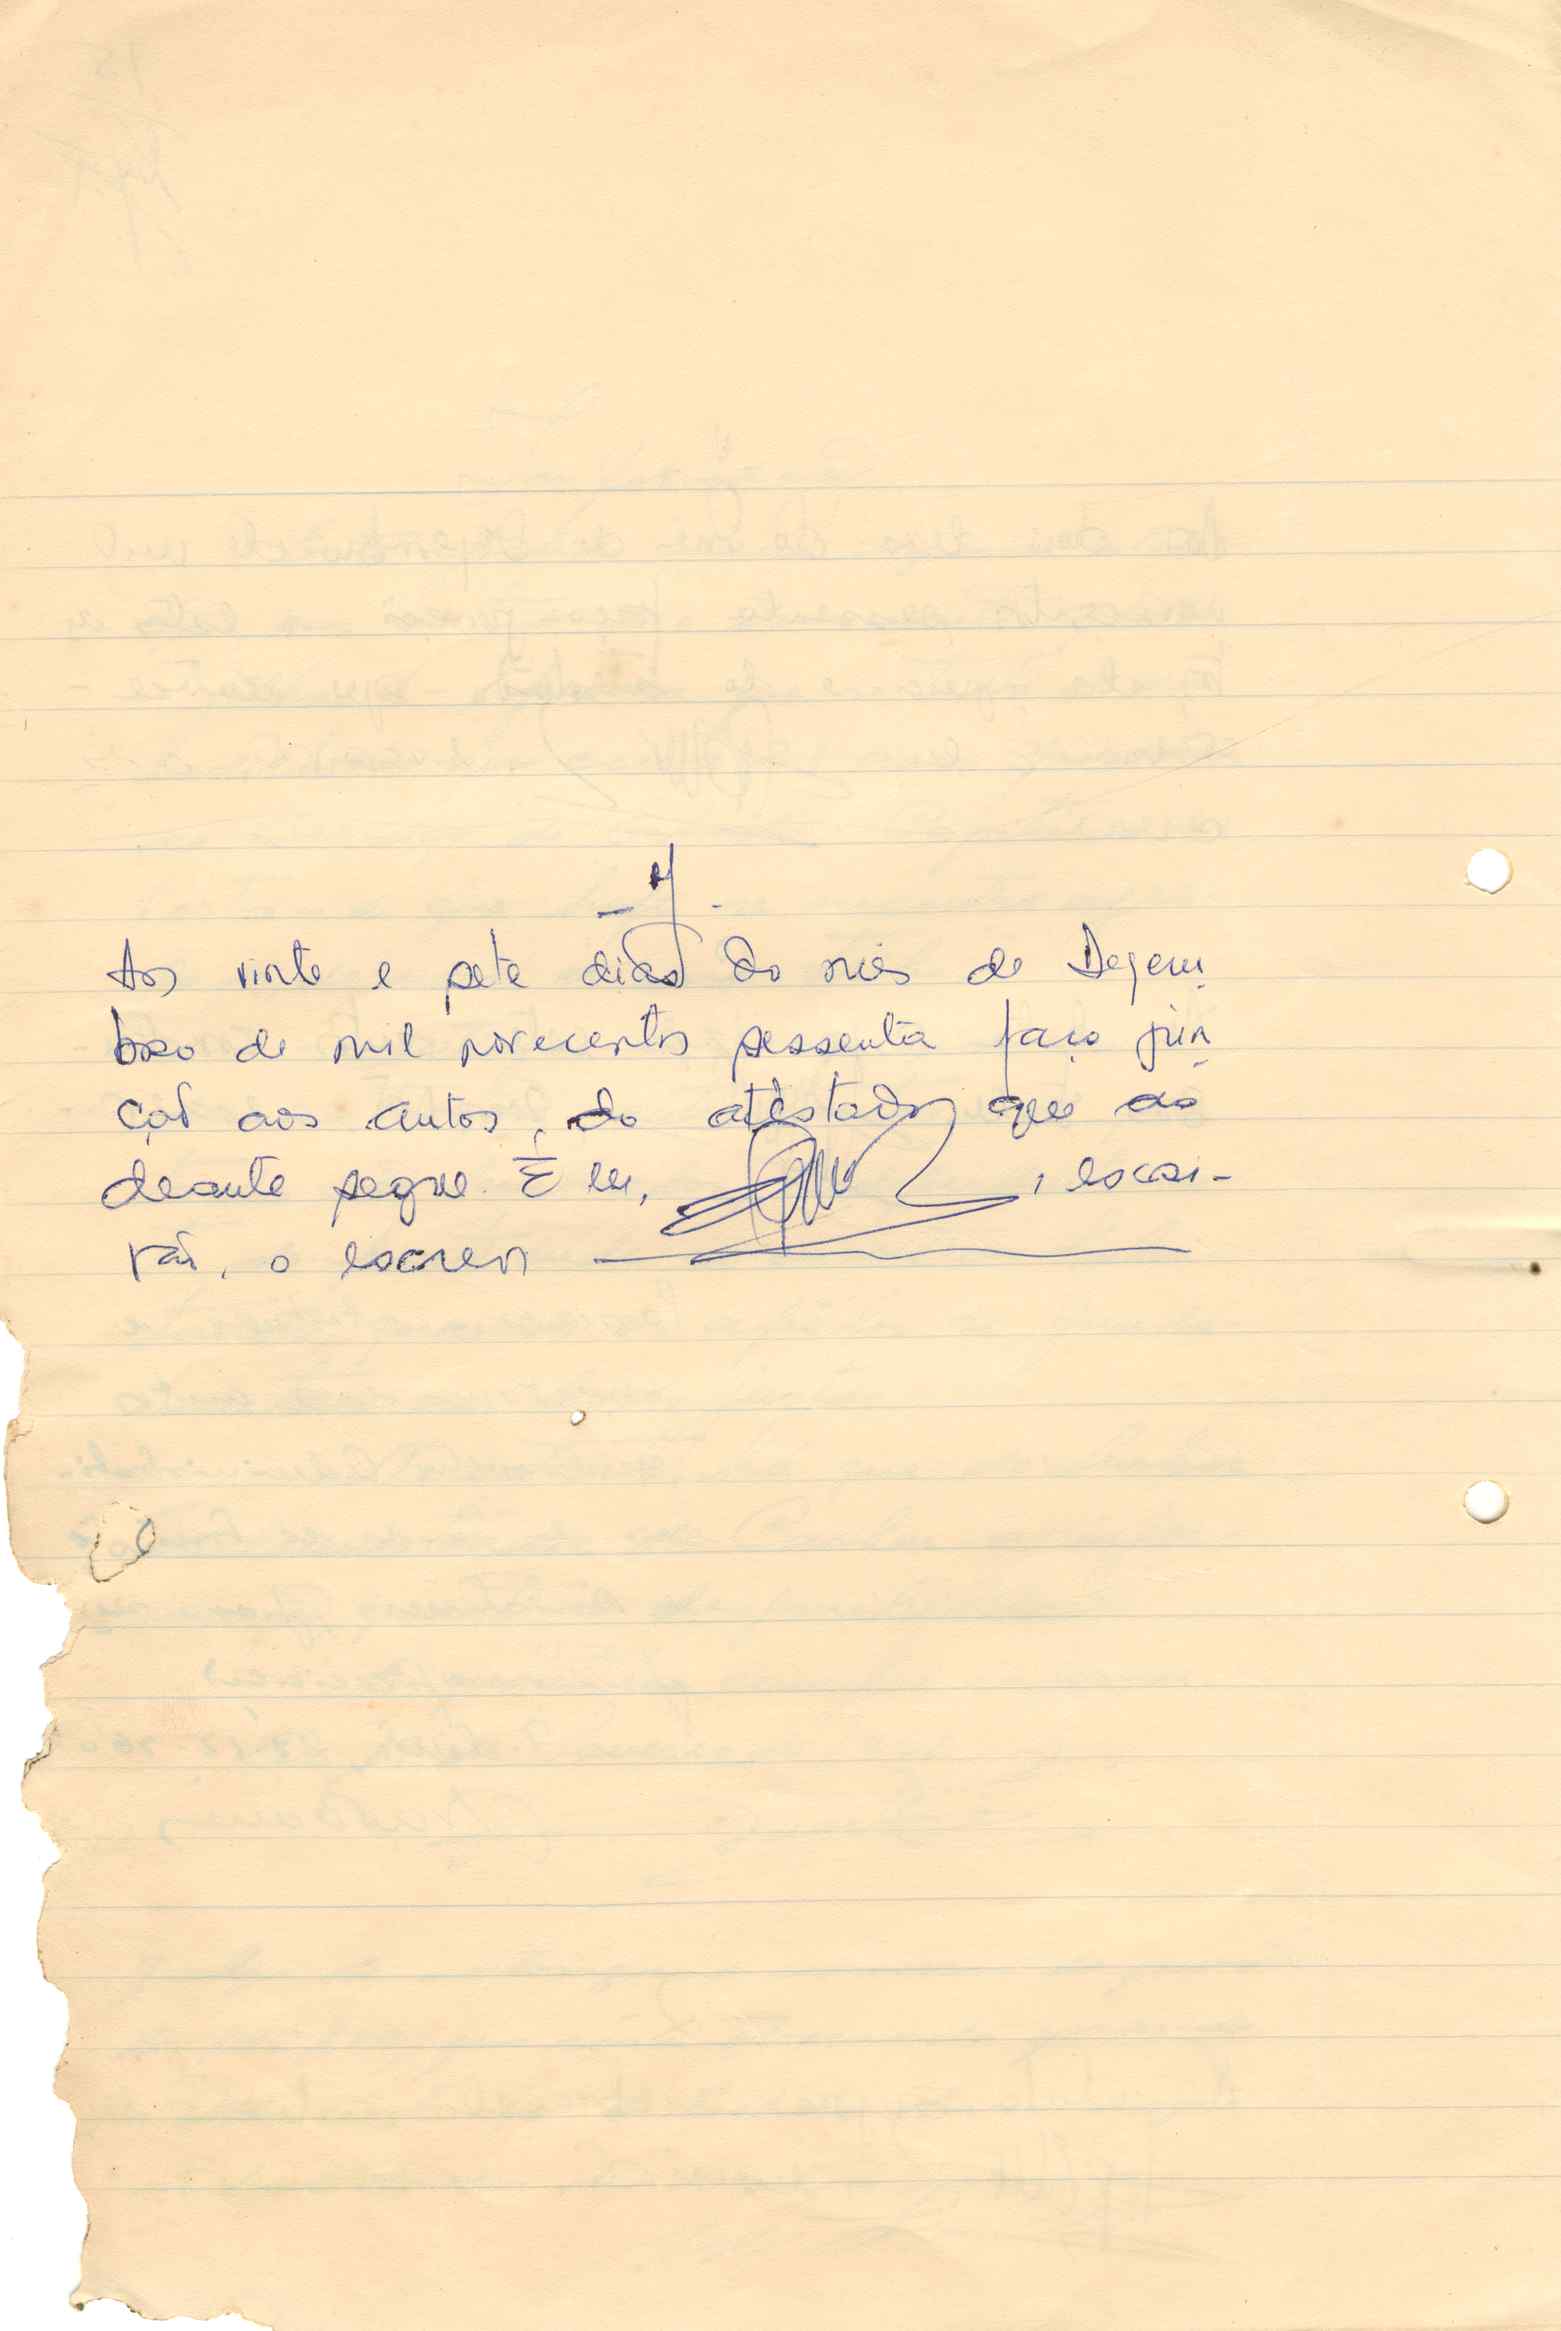 Aos vinte e sete dias do mês de Dezem-
bro de mil novecentos sessenta faço jun-
ção aos autos, do atestado que ao
deante segue. E eu, , escri-
vão, o escrevi